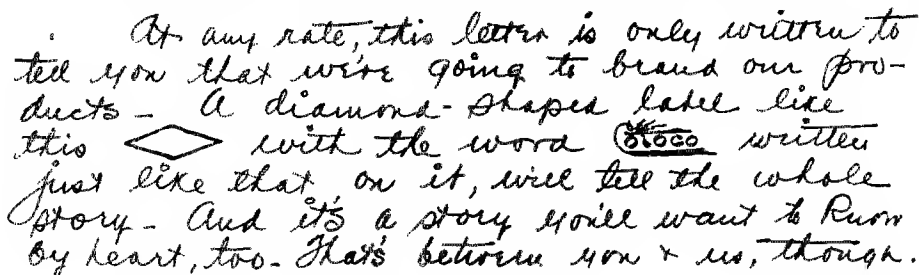 At any rate, this letter is only written to
tell you that we're going to brand our pro-
ducts - A diamond-shaped label like
this with the word written
just like that, on it, will tell the whole
story - And it's a story you'll want to know
by heart, too - That's between you & us, though.